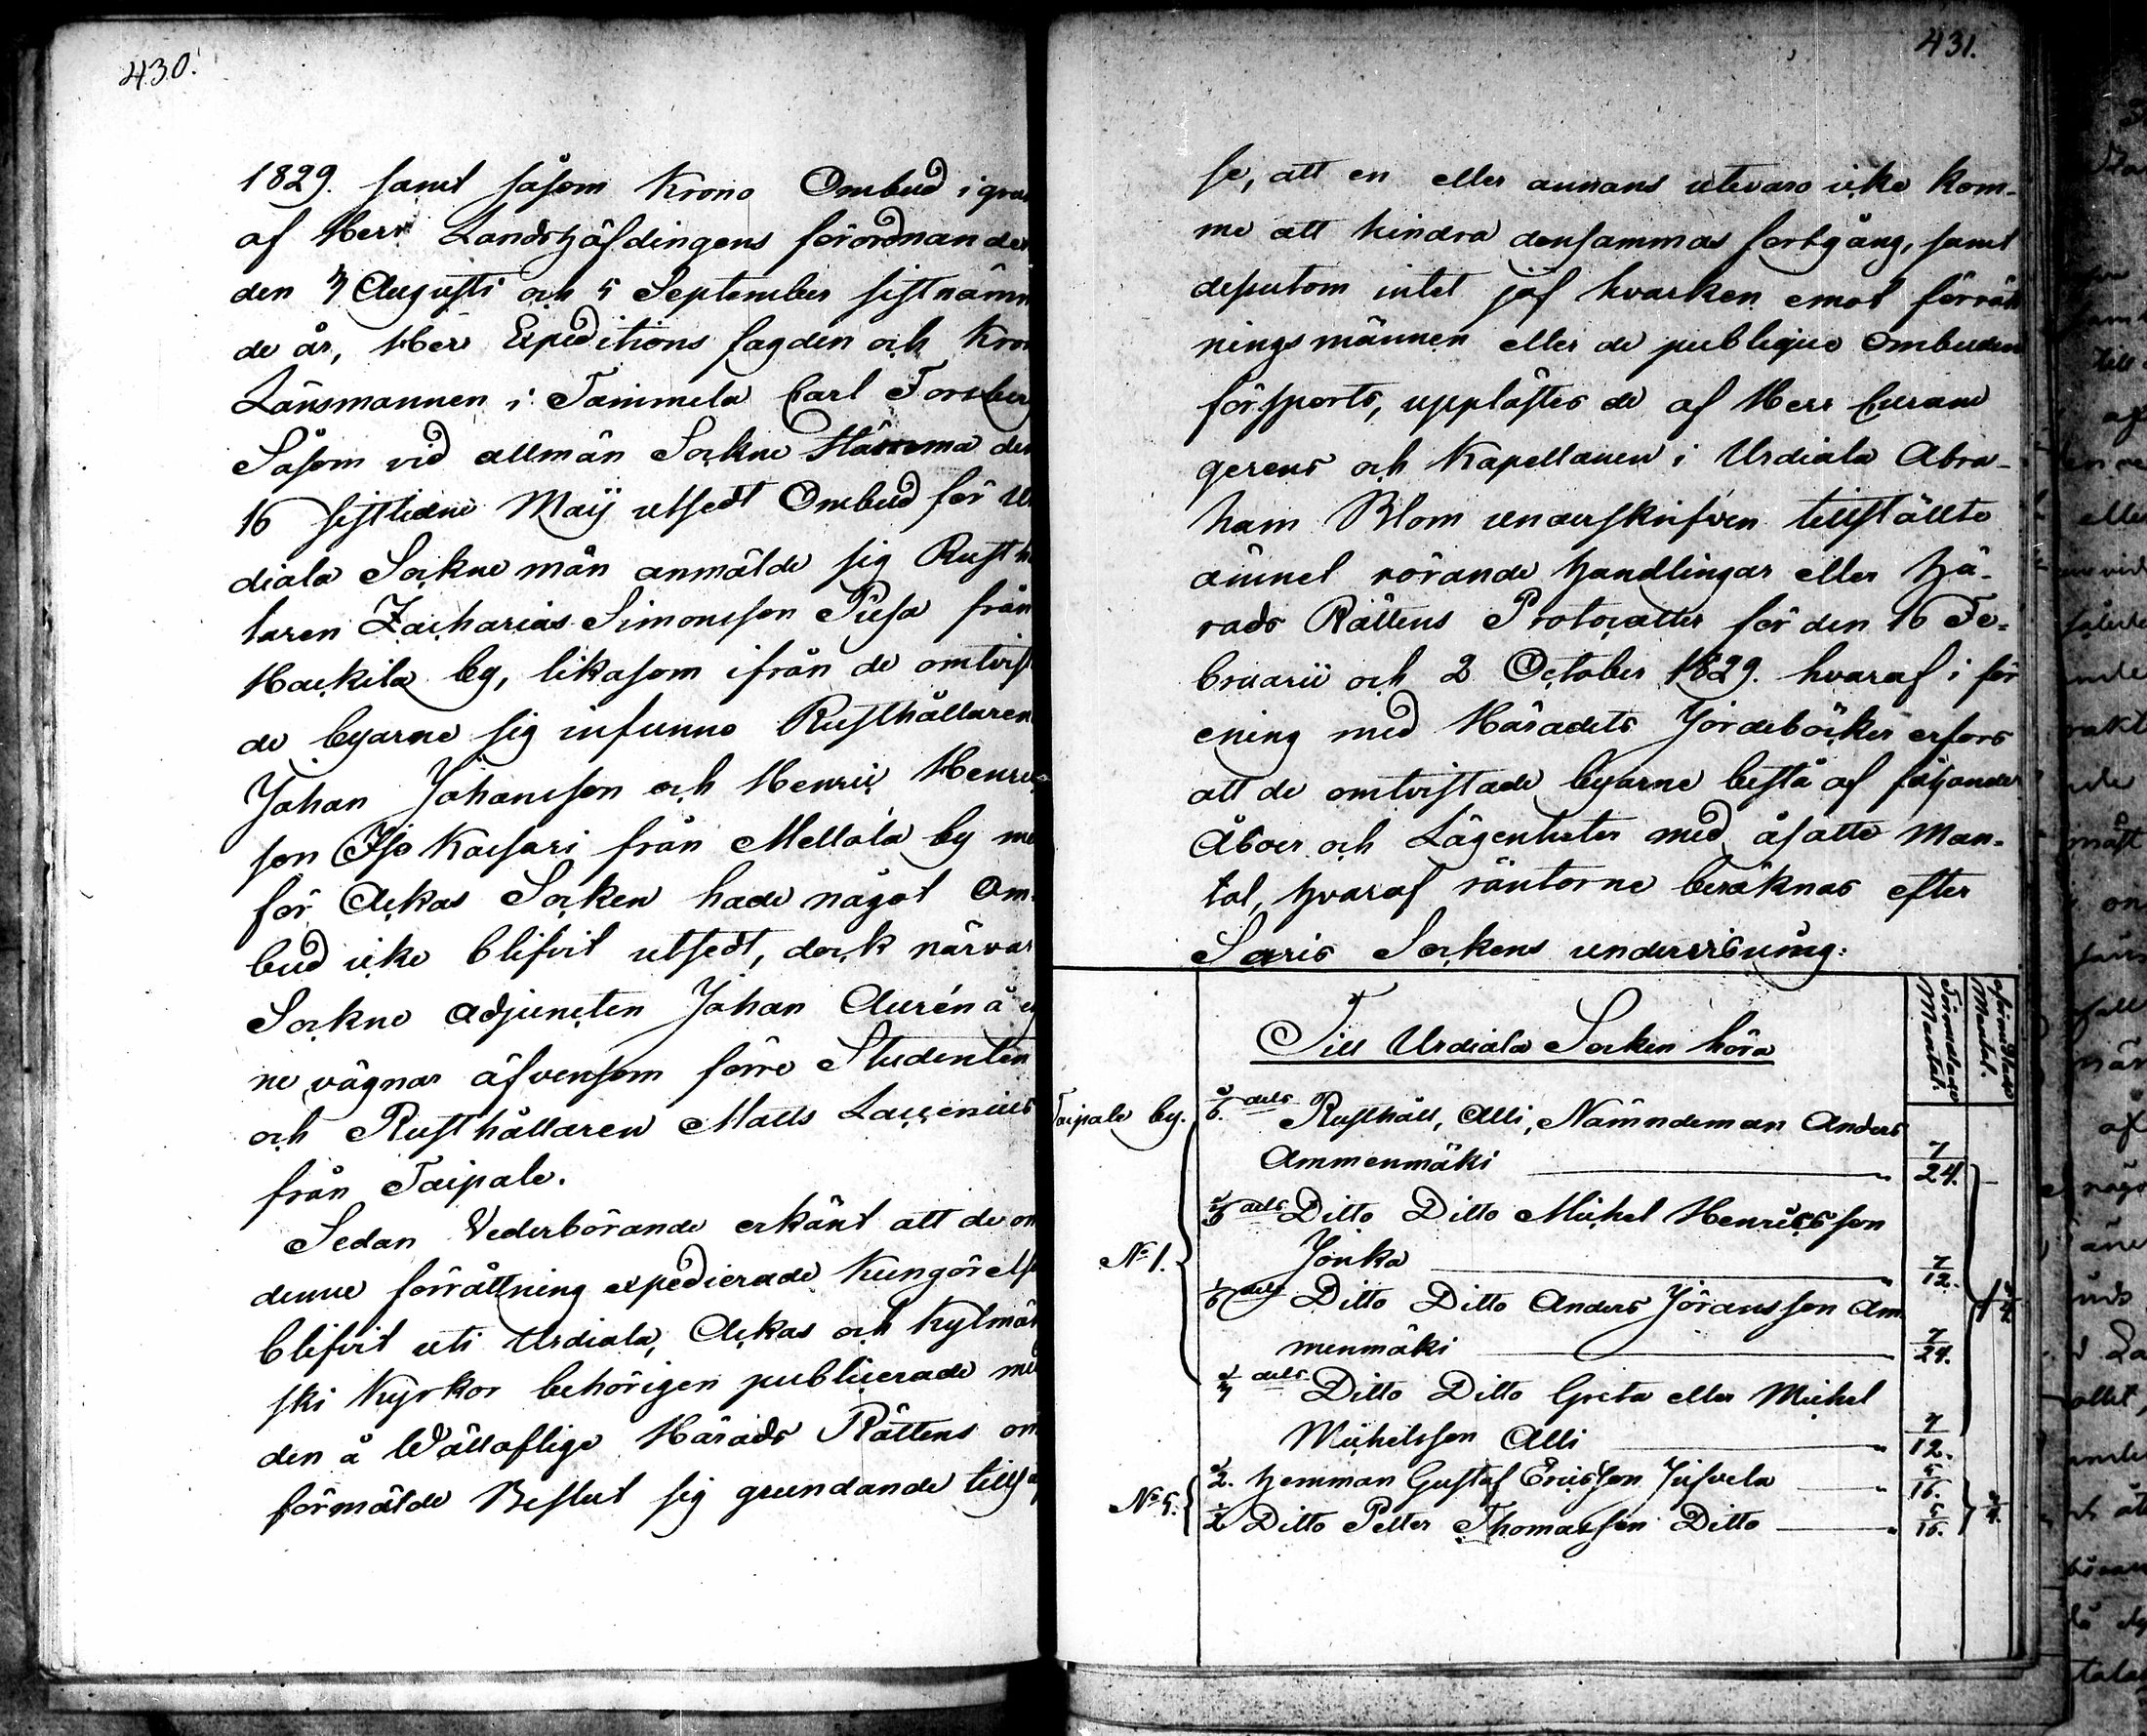 430.
1829. samt såsom Krono Ombud i
af Herr Landshöfdingens förordnande
den 7 Augusti och 5 September sistnämn
de år, Herr Expeditions fogden och Kro
Länsmannen i Tammela Carl Forsberg
Såsom vid allmän Sockne Stämma den
16 sistledne Maij utsedt Ombud för U
diala Sockne män anmälde sig Rusth
laren Zacharias Simonsson Pusa från
Hackila by, likasom ifrån de omtvist
de byarne sig infunno Rusthållaren
Johan Johansson och Henric Henric
son Iso Kaisari från Mellola by me
för Ackas Socken hade något Om-
bud icke blifvit utsedt, dock närvar
Sockne adjuncten Johan Aurén å eg
ne vägnar äfvensom förre Studenten
och Rusthållaren Matts Laccenius
från Taipale.
Sedan Vederbörande erkänt att de om
denne förrättning expedierade Kungörelse
blifvit uti Urdiala, Ackas och Kylmä
ski Kyrkor behörigen publicerade me
den å Wällofliga Härads Rättens om
förmälde Beslut sig grundande
431.
se, att en eller annans utevaro icke kom-
me att hindra densammas fortgång, samt
dessutom intet jäf hvarken emot förrätt
ningsmännen eller de publique Ombuden
försports, upplästes de af Herr Curam
gerens och Kapellanen i Urdiala Abra-
ham Blom underskrifven tillställte
ämnet rörande handlingar eller Hä-
rads Rättens Protocoller för den 16 Fe-
bruarii och 2 October 1829. hvaraf i för
ening med Häradets Jordeböcker erfors
att de omtvistade byarne bestå af följande
Åboer och Lägenheter med åsatte Man-
tal, hvaraf räntorne beräknas efter
Saris Sockens undervisning:
Till Urdiala Socken höra
Förmedlade Mantal.
Oförmedlade Mantal.
Taipale by.
dels Rusthåll, Alli, Nämndeman Anders
Ammenmäki 7/24.
dels Ditto Ditto Michel Henricsson
No 1. Jonka 7/12.
1/6 dels Ditto Ditto Anders Jöransson Am
menmäki 7/24.
dels Ditto Ditto Greta eller Michel
Michelsson Alli 7/12.
No 5. 1/2. Hemman Gustaf Ericsson Jusvela 5/16.
1/2 Ditto Petter Thomasson Ditto 5/16.